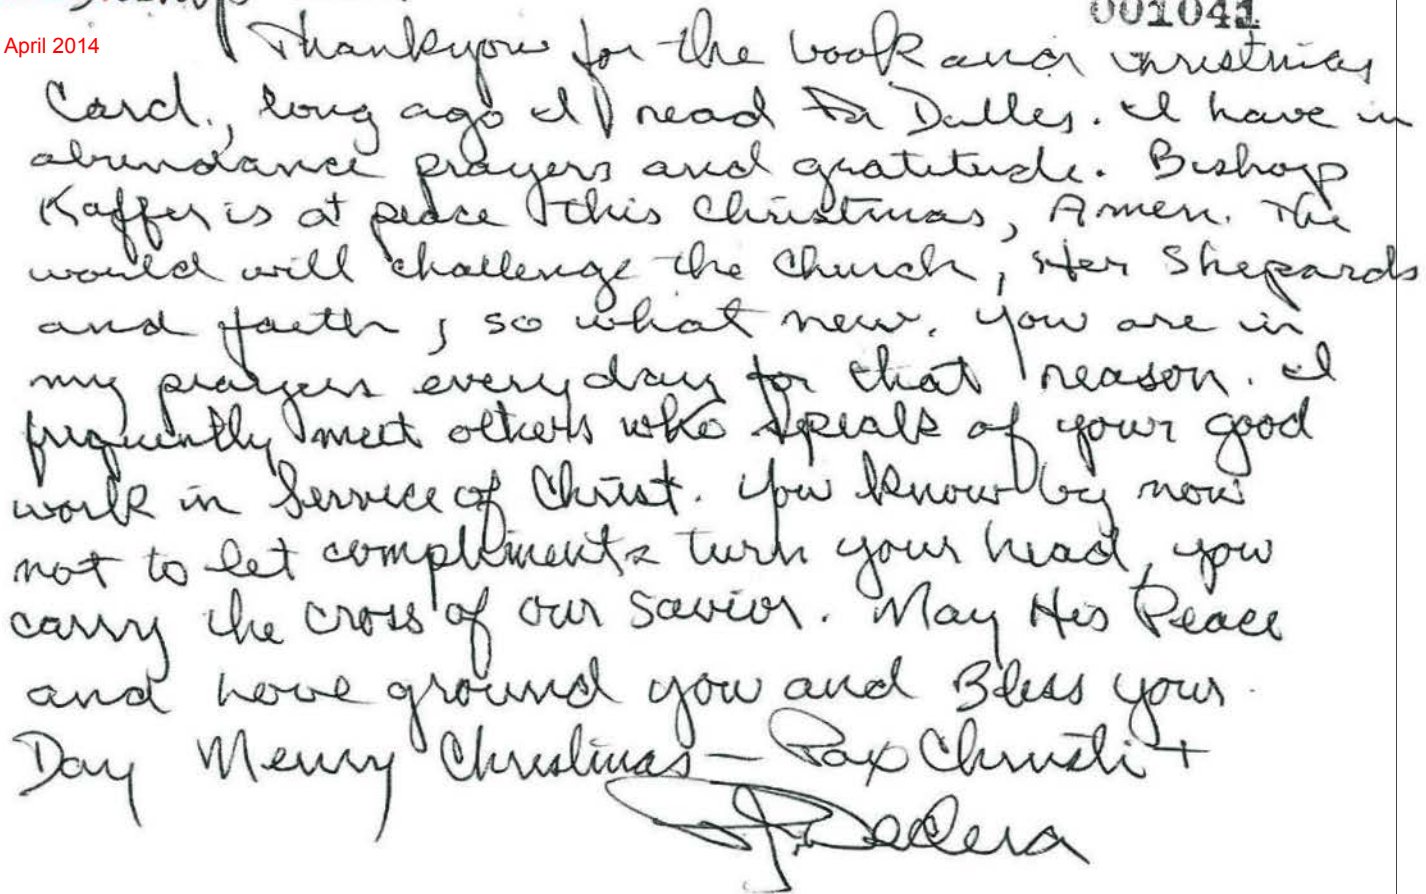 001041
April 2014
Thankyou for the book and christmas
Card., long ago I read Fr Dulles. I have in
abundance prayers and gratitude. Bishop
Kaffer is at peace this Christmas, Amen. The
world will challenge the Church, Her Shepards
and faith, so what new. you are in
my prayers everyday for that reason. I
frequently meet others who speak of your good
work in Service of Christ. you know by now
not to let compliments turn your head, you
carry the cross of our Savior. May His Peace
and Love ground you and Bless your
Day Merry Christmas — Pax Christi +